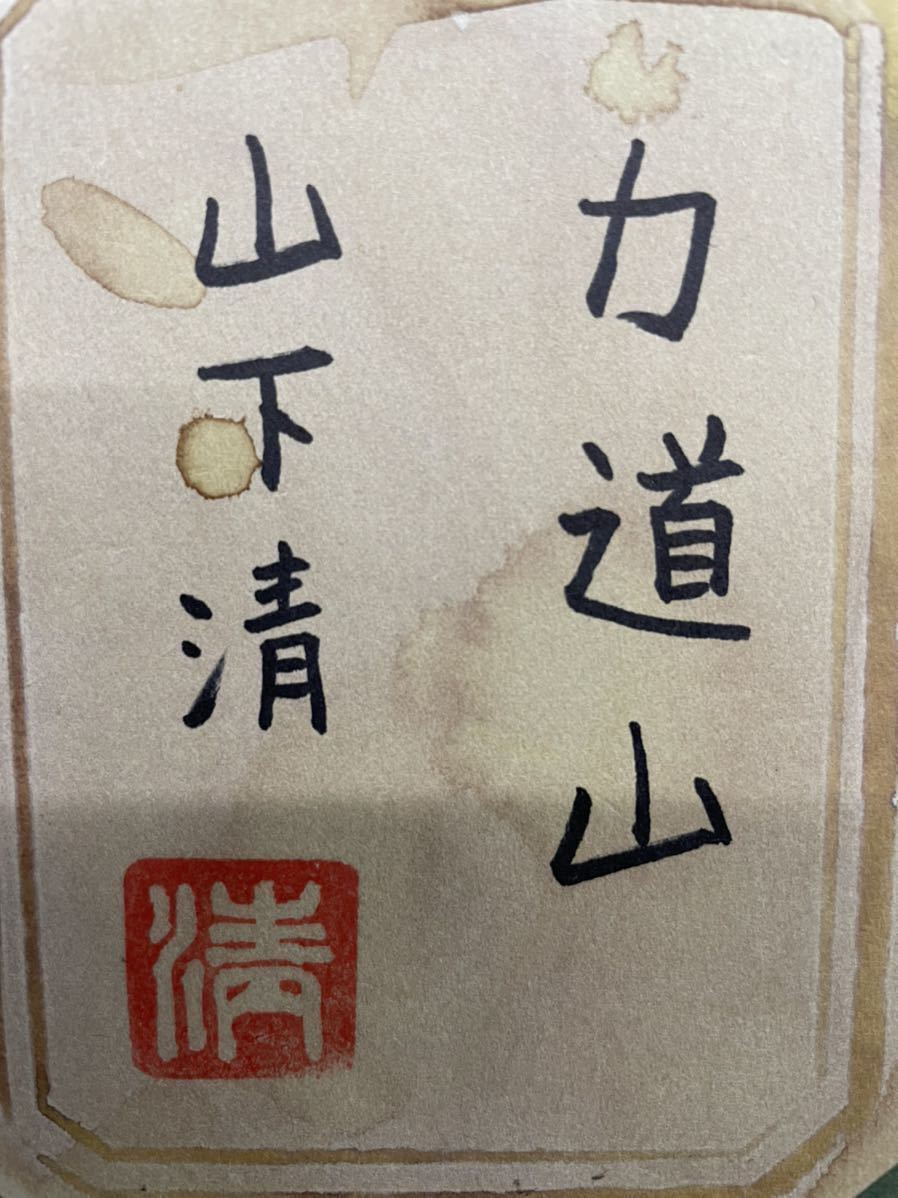 力道山
山下清
清